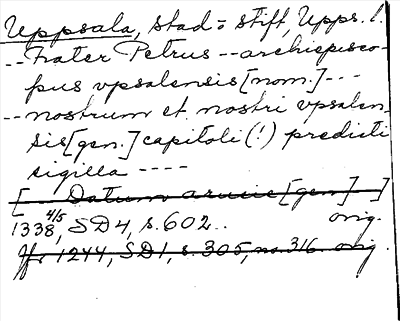 Uppsala, stad o stift, Upps. l.
-- Frater Petrus -- archiepisco-
pus vpsalensis [nom.] ---
-- nostrum et nostri vpsalen-
sis [gen.] capitoli (!) predicti
sigilla ----
[ Datum arusie [gen] ]
1338 4/5, SD4, s. 602.. orig.
Jfr 1244, SD1, s. 305, no. 316. orig.